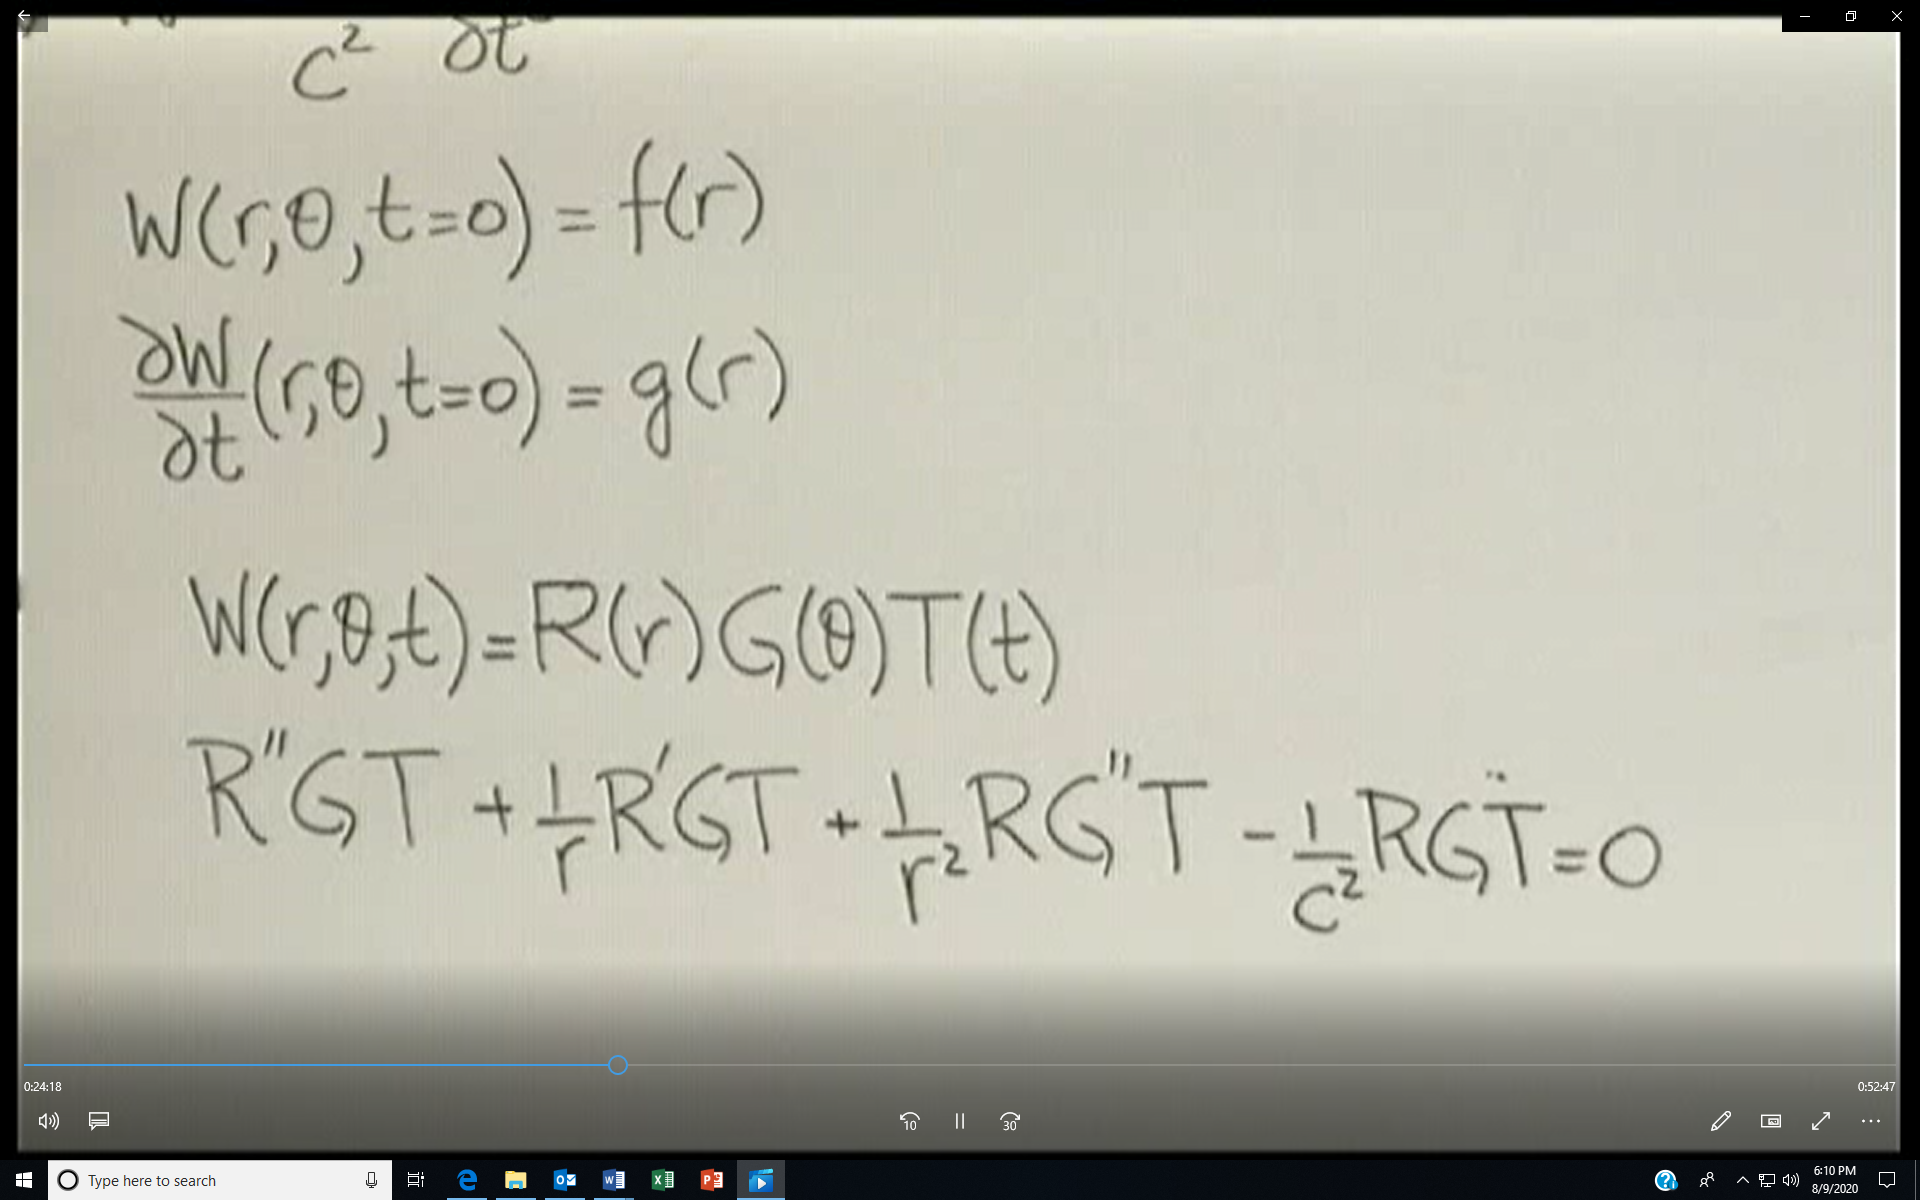 c² ∂t
W(r,θ,t=0) = f(r)
∂W/∂t (r,θ,t=0) = g(r)
W(r,θ,t) = R(r)G(θ)T(t)
R″GT + 1/r R′GT + 1/r² RG″T - 1/c² RGT̈ = 0
0:24:18
0:52:47
10
30
Type here to search
6:10 PM
8/9/2020